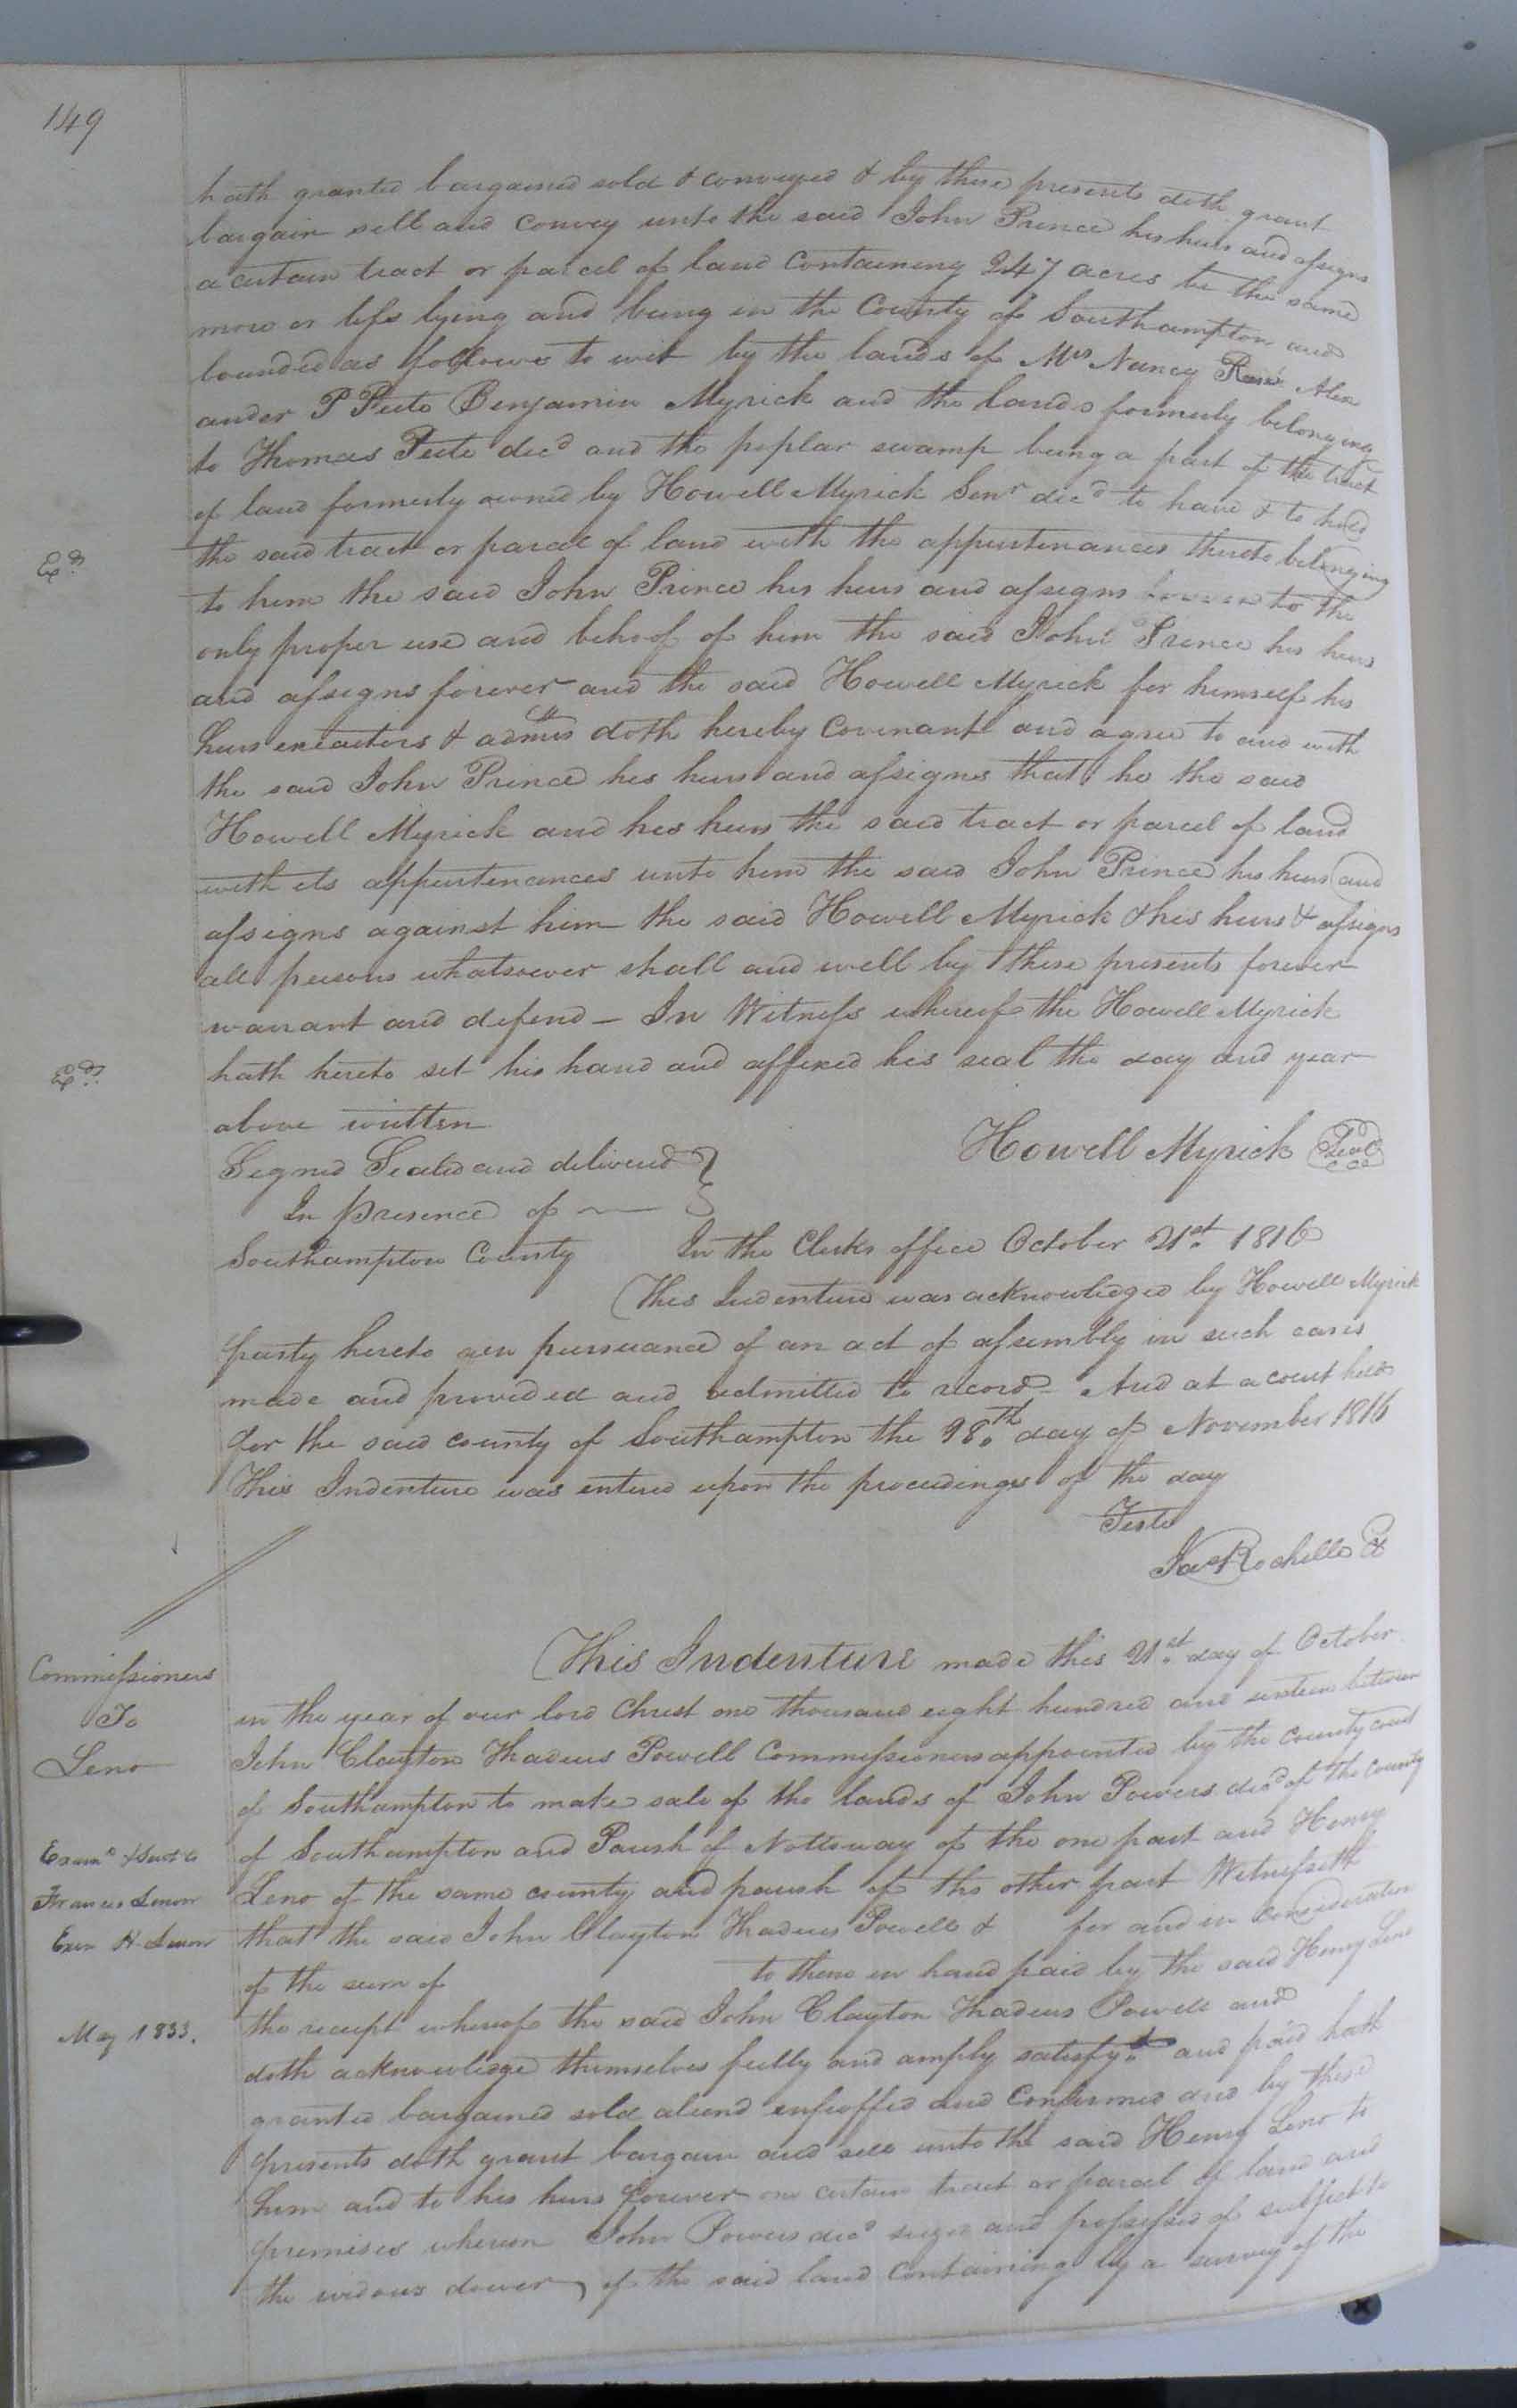 149
hath granted bargained sold & conveyed & by these presents doth grant
bargain sell and convey unto the said John Prince his heirs and assigns
a certain tract or parcel of land containing 247 acres be the same
more or less lying and being in the County of Southampton and
bounded as follows to wit by the lands of Mrs Nancy Alex
ander P Peete Benjamin Myrick and the lands formerly belonging
to Thomas Peete decd and the poplar swamp being a part of the tract
of land formerly owned by Howell Myrick Senr decd to have & to hold
the said tract or parcel of land with the appurtenances thereto belonging
to him the said John Prince his heirs and assigns to the
only proper use and behoof of him the said John Prince his heirs
and assigns forever and the said Howell Myrick for himself his
heirs executors & admrs doth hereby covenant and agree to and with
the said John Prince his heirs and assigns that he the said
Howell Myrick and his heirs the said tract or parcel of land
with its appurtenances unto him the said John Prince his heirs and
assigns against him the said Howell Myrick & his heirs & assigns
all persons whatsoever shall and well by these presents forever
warrant and defend — In Witness whereof the Howell Myrick
hath hereto set his hand and affixed his seal the day and year
above written
Howell Myrick Seal
Signed Sealed and delivered
In presence of —
Southampton County In the Clerks office October 21st 1816
This Indenture was acknowledged by Howell Myrick
party hereto in pursuance of an act of assembly in such cases
made and provided and admitted to record - And at a court held
for the said county of Southampton the 18th day of November 1816
This Indenture was entered upon the proceedings of the day
Teste
Jas Rochelle C
Commissioners
To
Leno
Examd & Sent to
Francis Lenow
Exor H. Lenow
May 1833.
This Indenture made this 21st day of October
in the year of our lord Christ one thousand eight hundred and sixteen between
John Clayton Thadeus Powell Commissioners appointed by the county court
of Southampton to make sale of the lands of John Powers decd of the County
of Southampton and Parish of Nottoway of the one part and Henry
Leno of the same county and parish of the other part Witnesseth
that the said John Clayton Thadeus Powell & for and in consideration
of the sum of to them in hand paid by the said Henry Leno
the receipt whereof the said John Clayton Thadeus Powell and
doth acknowledge themselves fully and amply satisfyd and paid hath
granted bargained sold aliend enfeoffed and confirmed and by these
presents doth grant bargain and sell unto the said Henry Leno to
him and to his heirs forever one certain tract or parcel of land and
premises whereon John Powers decd seized and possessed of subject to
the widows dower, of the said land containing by a survey of the